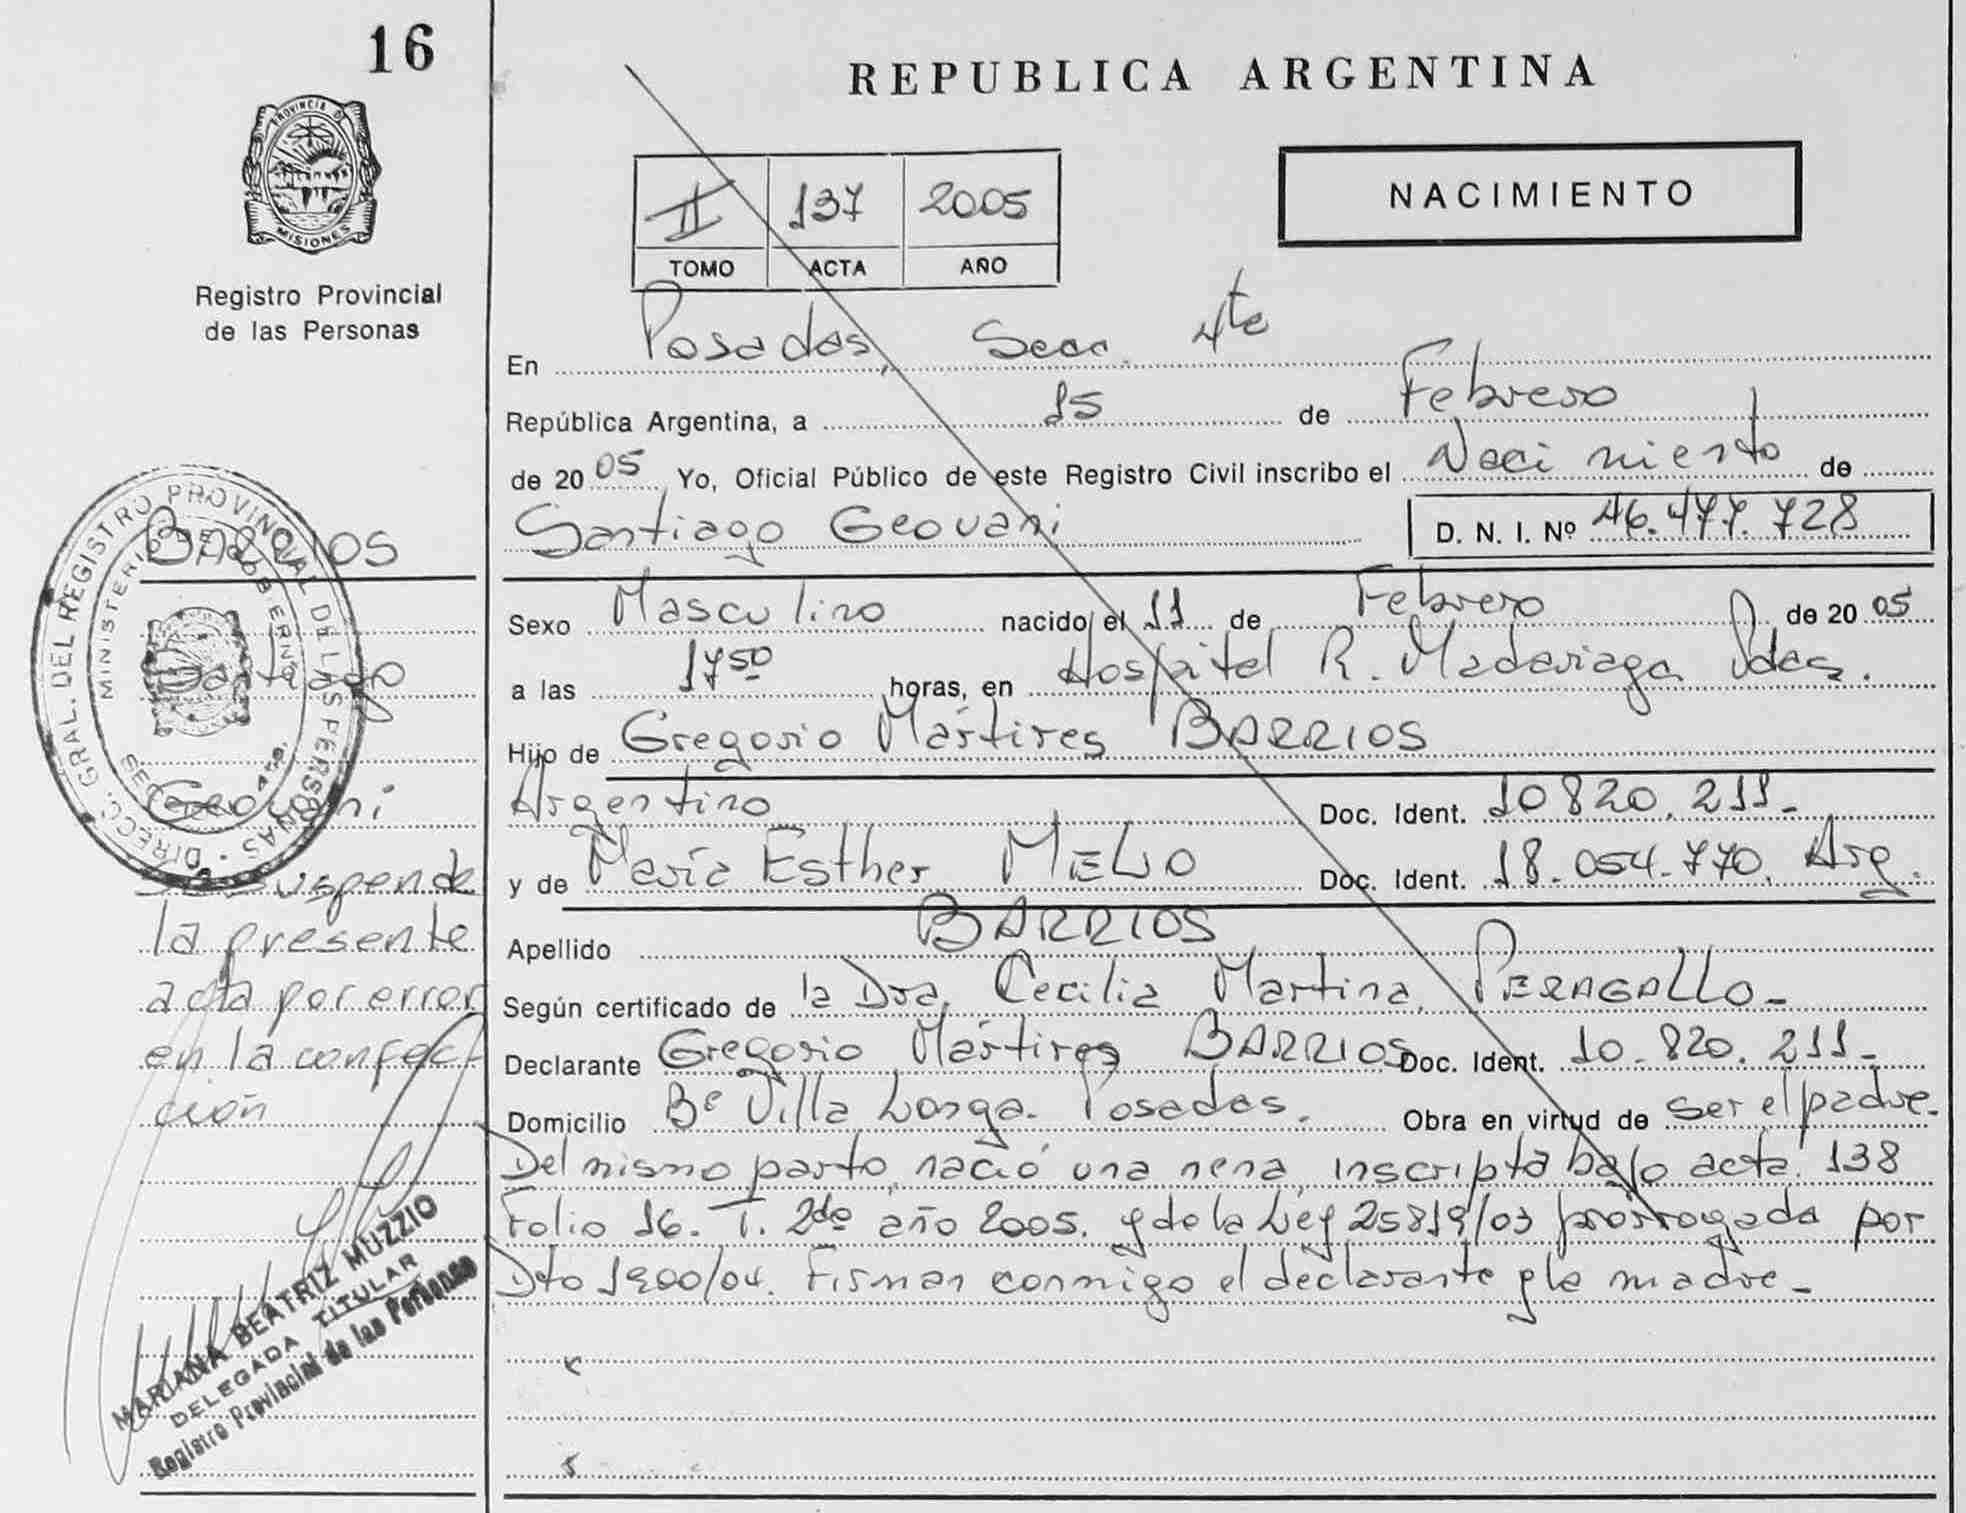 16
PROVINCIA DE
MISIONES
Registro Provincial
de las Personas
REPUBLICA ARGENTINA
NACIMIENTO
II 137 2005
TOMO ACTA AÑO
En Posadas, Secc. 4ta
República Argentina, a 15 de Febrero
de 2005 Yo, Oficial Público de este Registro Civil inscribo el Nacimiento de
Santiago Geovani D. N. I. Nº 46.477.728
Sexo Masculino nacido el 11 de Febrero de 2005
a las 17 50 horas, en Hospital R. Madariaga Pdas.
Hijo de Gregorio Mártires BARRIOS
Argentino Doc. Ident. 10820.211-
y de María Esther MELO Doc. Ident. 18.054.770. Arg.
Apellido BARRIOS
Según certificado de la Dra. Cecilia Martina PERAGALLO-
Declarante Gregorio Mártires BARRIOS Doc. Ident. 10.820.211-
Domicilio Bº Villa Longa. Posadas. Obra en virtud de ser el padre.
Del mismo parto, nació una nena, inscripta bajo acta 138
Folio 16. T. 2do año 2005. y de la Ley 25819/03 prorrogada por
Dto 1900/04. Firman conmigo el declarante y la madre-
BARRIOS
Santiago
Geovani
Se suspende
la presente
acta por error
en la confec-
ción
DIRECC. GRAL. DEL REGISTRO PROVINCIAL DE LAS PERSONAS
MINISTERIO DE GOBIERNO
MARIANA BEATRIZ MUZZIO
DELEGADA TITULAR
Registro Provincial de las Personas